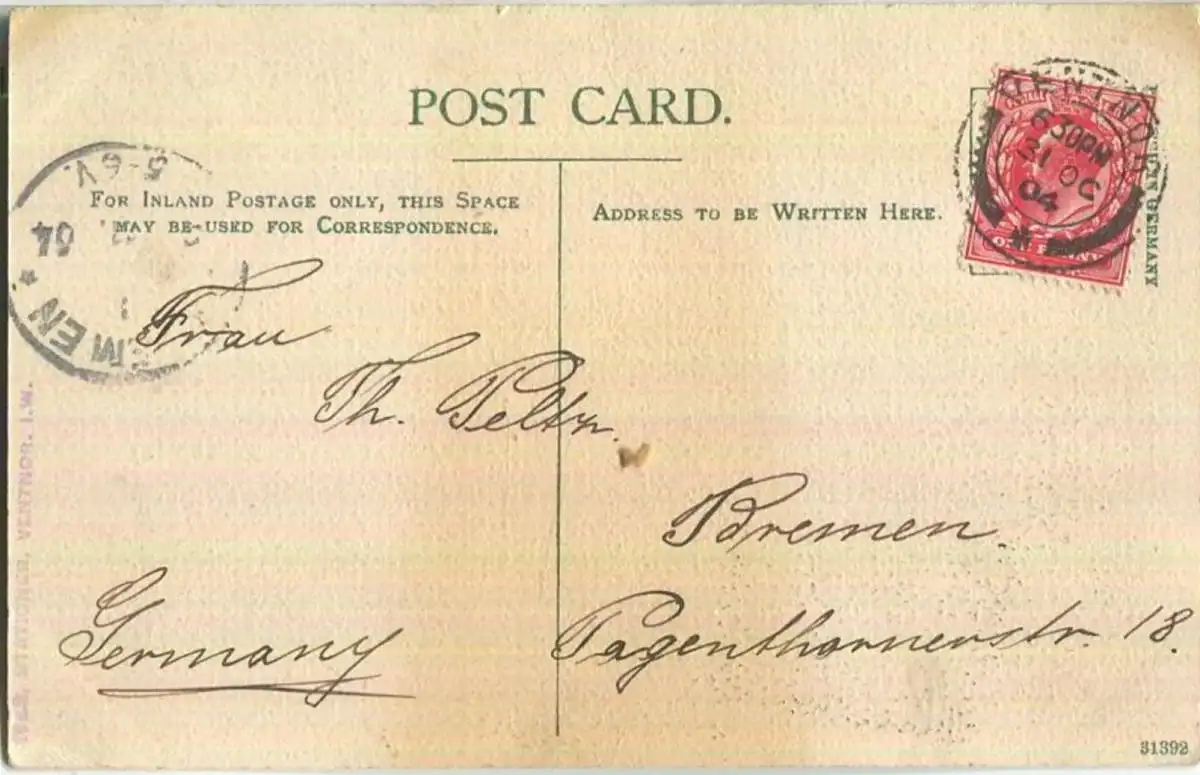 POST CARD.
FOR INLAND POSTAGE ONLY, THIS SPACE
MAY BE USED FOR CORRESPONDENCE.
ADDRESS TO BE WRITTEN HERE.
VENTNOR
6 30PM
31 OC
04
GERMANY
5-6V.
04
EMEN *
Frau
Th. Peltzr.
Bremen.
Pagenthornerstr. 18.
Germany
STATIONER, VENTNOR. I.W.
31392